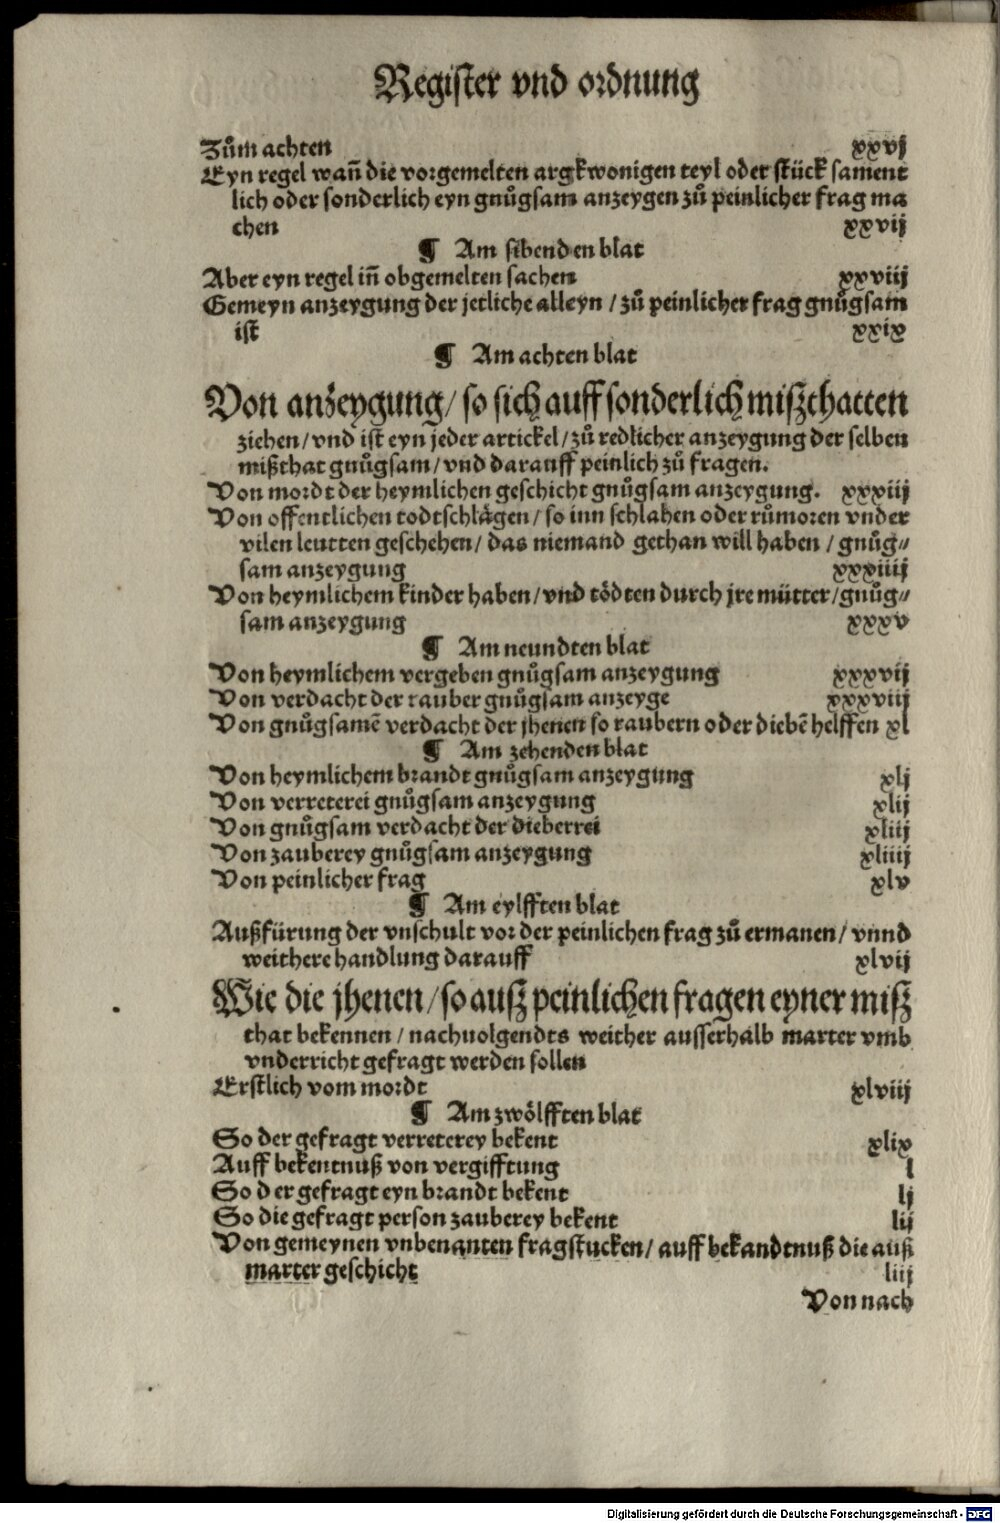 Register vnd ordnung
Zům achten xxvj
Eyn regel wañ die vorgemelten argkwonigen teyl oder stück sament
lich oder sonderlich eyn gnůgsam anzeygen zů peinlicher frag ma
chen xxvij
¶ Am sibenden blat
Aber eyn regel iñ obgemelten sachen xxviij
Gemeyn anzeygung der jetliche alleyn / zů peinlicher frag gnůgsam
ist xxix
¶ Am achten blat
Von anzeygung / so sich auff sonderlich miszthatten
ziehen / vnd ist eyn jeder artickel / zů redlicher anzeygung der selben
mißthat gnůgsam / vnd darauff peinlich zů fragen.
Von mordt der heymlichen geschicht gnůgsam anzeygung. xxxiij
Von offentlichen todtschlägen / so inn schlahen oder růmoren vnder
vilen leutten geschehen / das niemand gethan will haben / gnůg⸗
sam anzeygung xxxiiij
Von heymlichem kinder haben / vnd tödten durch jre mütter / gnůg⸗
sam anzeygung xxxv
¶ Am neundten blat
Von heymlichem vergeben gnůgsam anzeygung xxxvij
Von verdacht der rauber gnůgsam anzeyge xxxviij
Von gnůgsamē verdacht der jhenen so raubern oder diebē helffen xl
¶ Am zehenden blat
Von heymlichem brandt gnůgsam anzeygung xlj
Von verreterei gnůgsam anzeygung xlij
Von gnůgsam verdacht der dieberrei xliij
Von zauberey gnůgsam anzeygung xliiij
Von peinlicher frag xlv
¶ Am eylfften blat
Außfürung der vnschult vor der peinlichen frag zů ermanen / vnnd
weithere handlung darauff xlvij
Wie die jhenen / so ausz peinlichen fragen eyner misz
that bekennen / nachuolgendts weither ausserhalb marter vmb
vnderricht gefragt werden sollen
Erstlich vom mordt xlviij
¶ Am zwölfften blat
So der gefragt verreterey bekent xlix
Auff bekentnuß von vergifftung l
So der gefragt eyn brandt bekent lj
So die gefragt person zauberey bekent lij
Von gemeynen vnbenanten fragstucken / auff bekandtnuß die auß
marter geschicht liij
Von nach
Digitalisierung gefördert durch die Deutsche Forschungsgemeinschaft - DFG